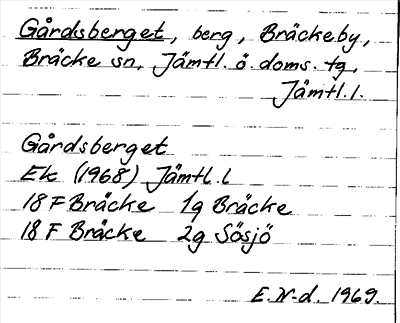 Gårdsberget, berg, Bräcke by,
Bräcke sn, Jämtl. ö. doms. tg,
Jämtl. l.
Gårdsberget
Ek (1968) Jämtl. l
18 F Bräcke 1g Bräcke
18 F Bräcke 2g Sösjö
E. N-d. 1969.